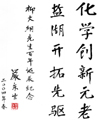 化学创新元老
盐湖开拓先驱
柳大纲先生百年诞辰纪念
严东生
二〇〇四年春